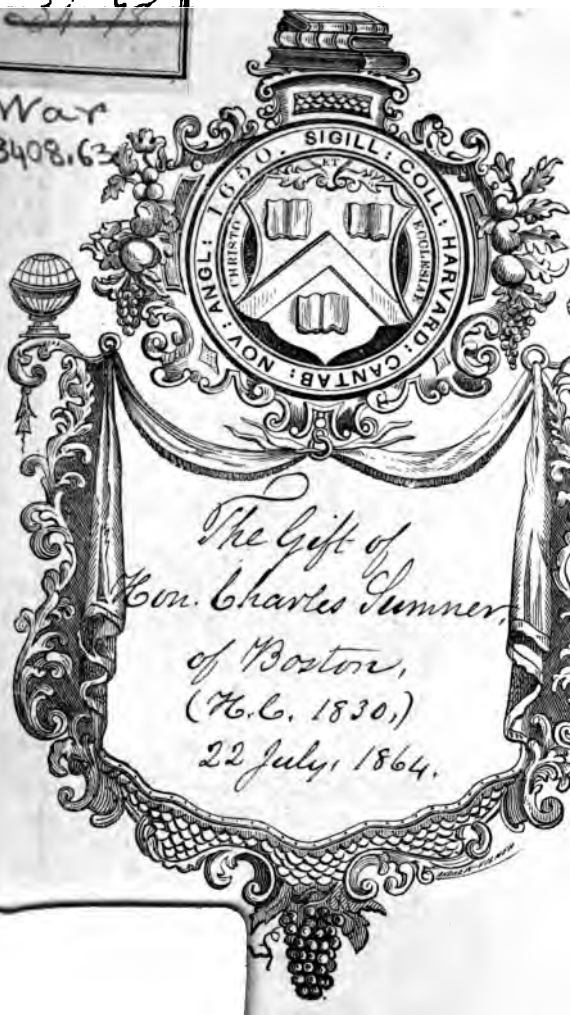 War
3408.63
1650. SIGILL: COLL: HARVARD: CANTAB: NOV: ANGL:
CHRISTO ET ECCLESIAE
The Gift of
Hon. Charles Sumner,
of Boston,
(H.C. 1830,)
22 July, 1864.